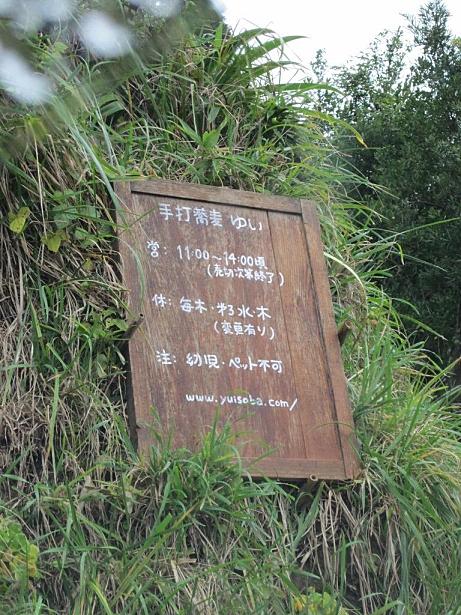 手打蕎麦 ゆい
営: 11:00〜14:00頃
(売切次第終了)
休: 毎木・第3水・木
(変更有り)
注: 幼児・ペット不可
www.yuisoba.com/